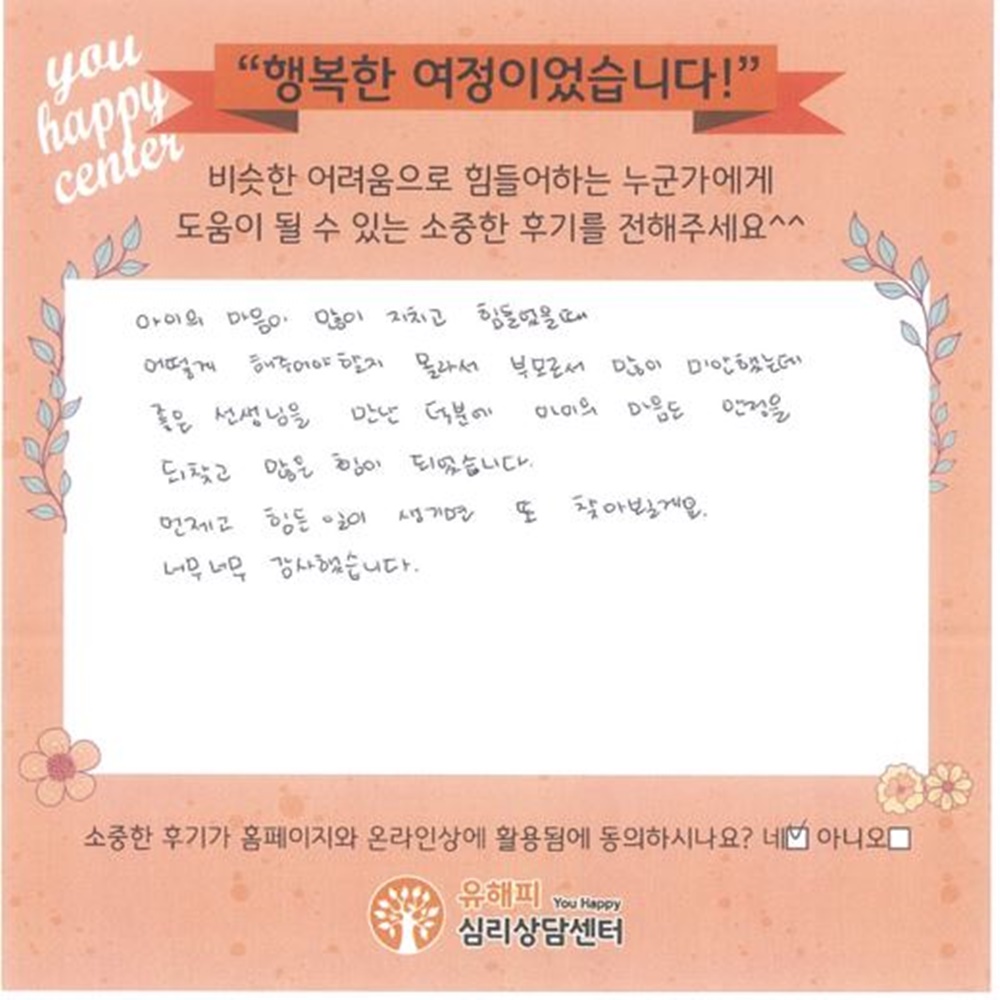 you
happy
center
“행복한 여정이었습니다!”
비슷한 어려움으로 힘들어하는 누군가에게
도움이 될 수 있는 소중한 후기를 전해주세요^^
아이의 마음이 많이 지치고 힘들었을때
어떻게 해주어야 할지 몰라서 부모로서 많이 미안했는데
좋은 선생님을 만난 덕분에 아이의 마음도 안정을
되찾고 많은 힘이 되었습니다.
언제고 힘든 일이 생기면 또 찾아뵐게요.
너무너무 감사했습니다.
소중한 후기가 홈페이지와 온라인상에 활용됨에 동의하시나요? 네☑ 아니오☐
유해피 You Happy
심리상담센터